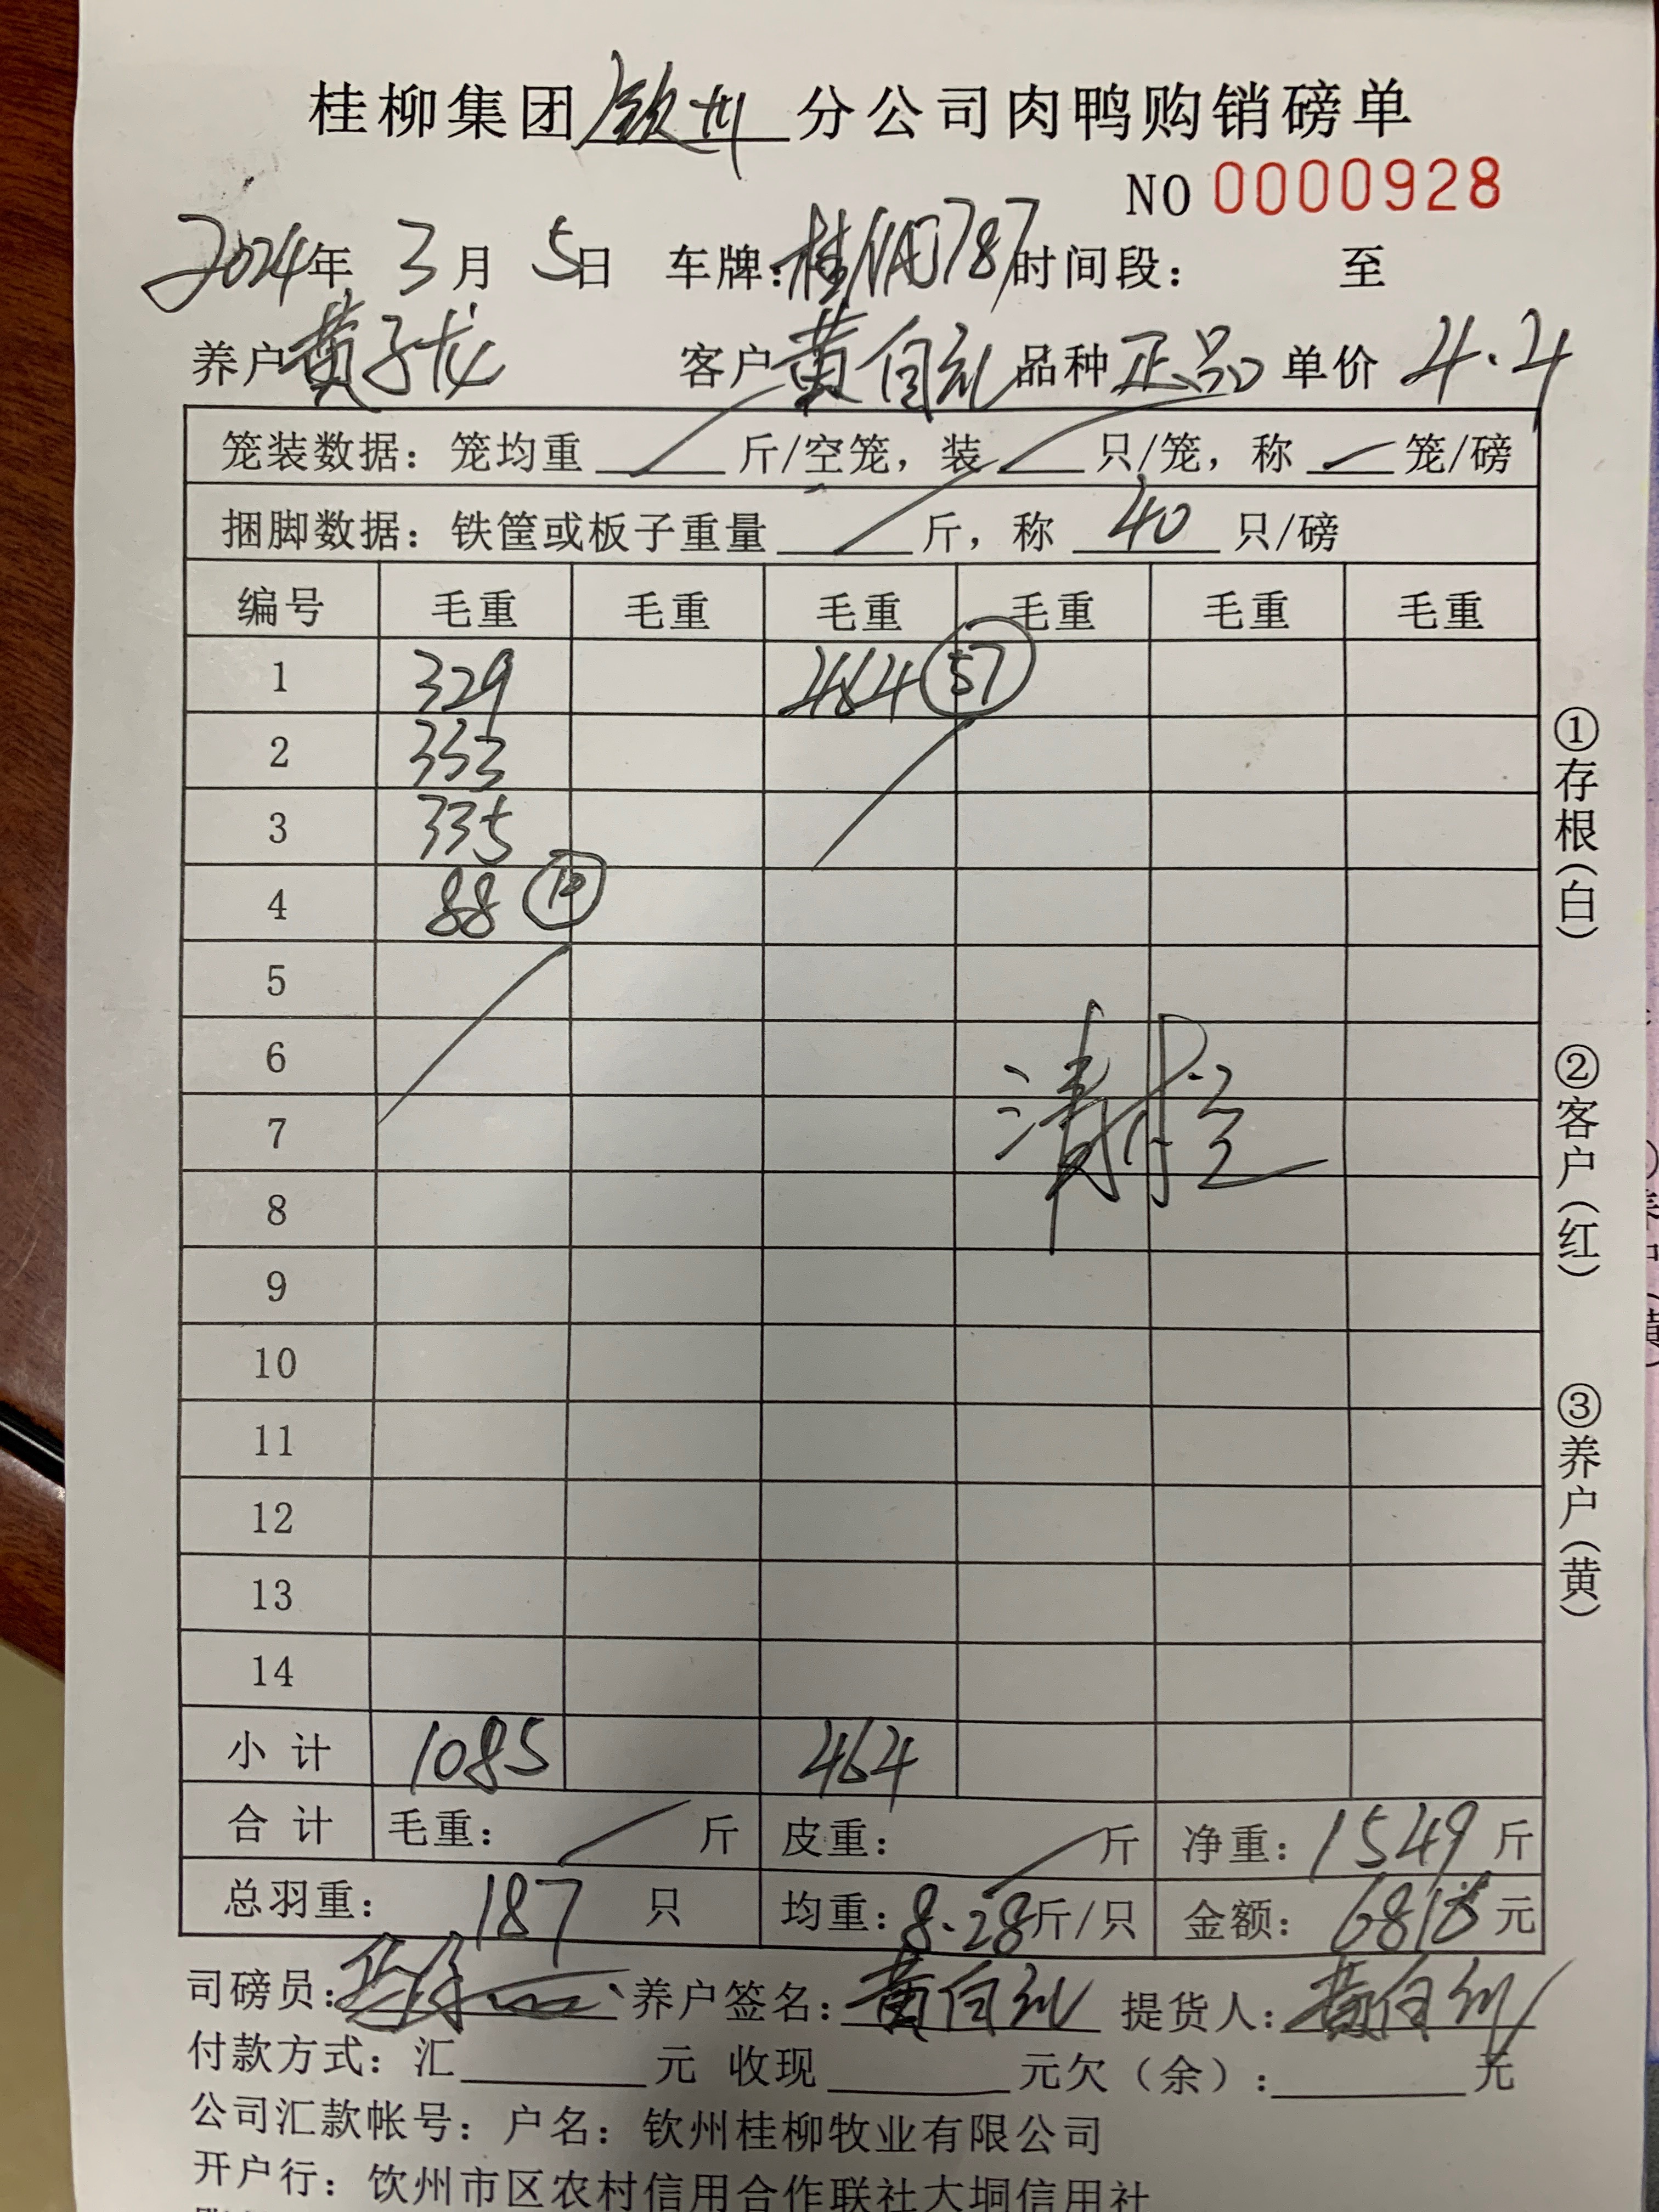 桂柳集团钦州分公司肉鸭购销磅单
NO 0000928
2024年 3月 5日 车牌:桂 787 时间段: 至
养户 黄子龙 客户 黄自 品种 正品 单价 4.4
笼装数据:笼均重 斤/空笼,装 只/笼,称 笼/磅
捆脚数据:铁筐或板子重量 斤,称 40 只/磅
编号 毛重 毛重 毛重 毛重 毛重 毛重
1 329 464 57
2 333
3 335
4 88 10
5
6
7 清栏
8
9
10
11
12
13
14
小计 1085 464
合计 毛重: 斤 皮重: 斤 净重:1549 斤
总羽重: 187 只 均重:8.28斤/只 金额: 6816 元
司磅员: 养户签名:黄自 提货人:黄自
付款方式:汇 元 收现 元欠(余): 元
公司汇款帐号:户名:钦州桂柳牧业有限公司
开户行:钦州市区农村信用合作联社大垌信用社
①存根(白)
②客户(红)
③养户(黄)